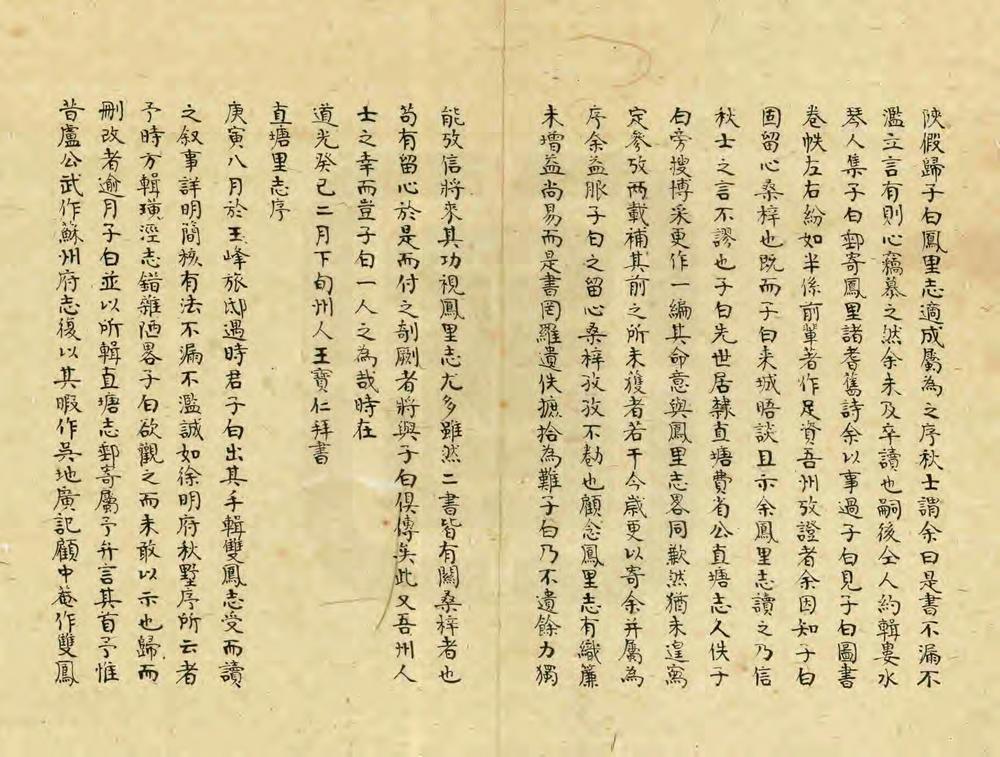 陝假歸子白鳳里志適成屬為之序秋士謂余曰是書不漏不
濫立言有則心竊慕之然余未及卒讀也嗣後仝人約輯婁水
琴人集子白郵寄鳳里諸耆舊詩余以事過子白見子白圖書
卷帙左右紛如半係前輩著作足資吾州攷證者余因知子白
固留心桑梓也既而子白来城晤談且示余鳳里志讀之乃信
秋士之言不謬也子白先世居隸直塘費省公直塘志久佚子
白旁搜博采更作一編其命意與鳳里志畧同歉然猶未遑寫
定參攷兩載補其前之所未獲者若干今歲更以寄余并屬為
序余益服子白之留心桑梓孜孜不勌也顧念鳳里志有織簾
未增益尚易而是書罔羅遺佚摭拾為難子白乃不遺餘力獨
能攷信將來其功視鳳里志尤多雖然二書皆有關桑梓者也
苟有留心於是而付之剞劂者將與子白俱傳矣此又吾州人
士之幸而豈子白一人之為哉時在
道光癸巳二月下旬州人王寶仁拜書
直塘里志序
庚寅八月於玉峰旅邸遇時君子白出其手輯雙鳳志受而讀
之叙事詳明簡核有法不漏不濫誠如徐明府秋墅序所云者
予時方輯璜涇志錯雜陋畧子白欲觀之而未敢以示也歸而
刪改者逾月子白並以所輯直塘志郵寄屬予弁言其首予惟
昔盧公武作蘇州府志復以其暇作吳地廣記顧中菴作雙鳳